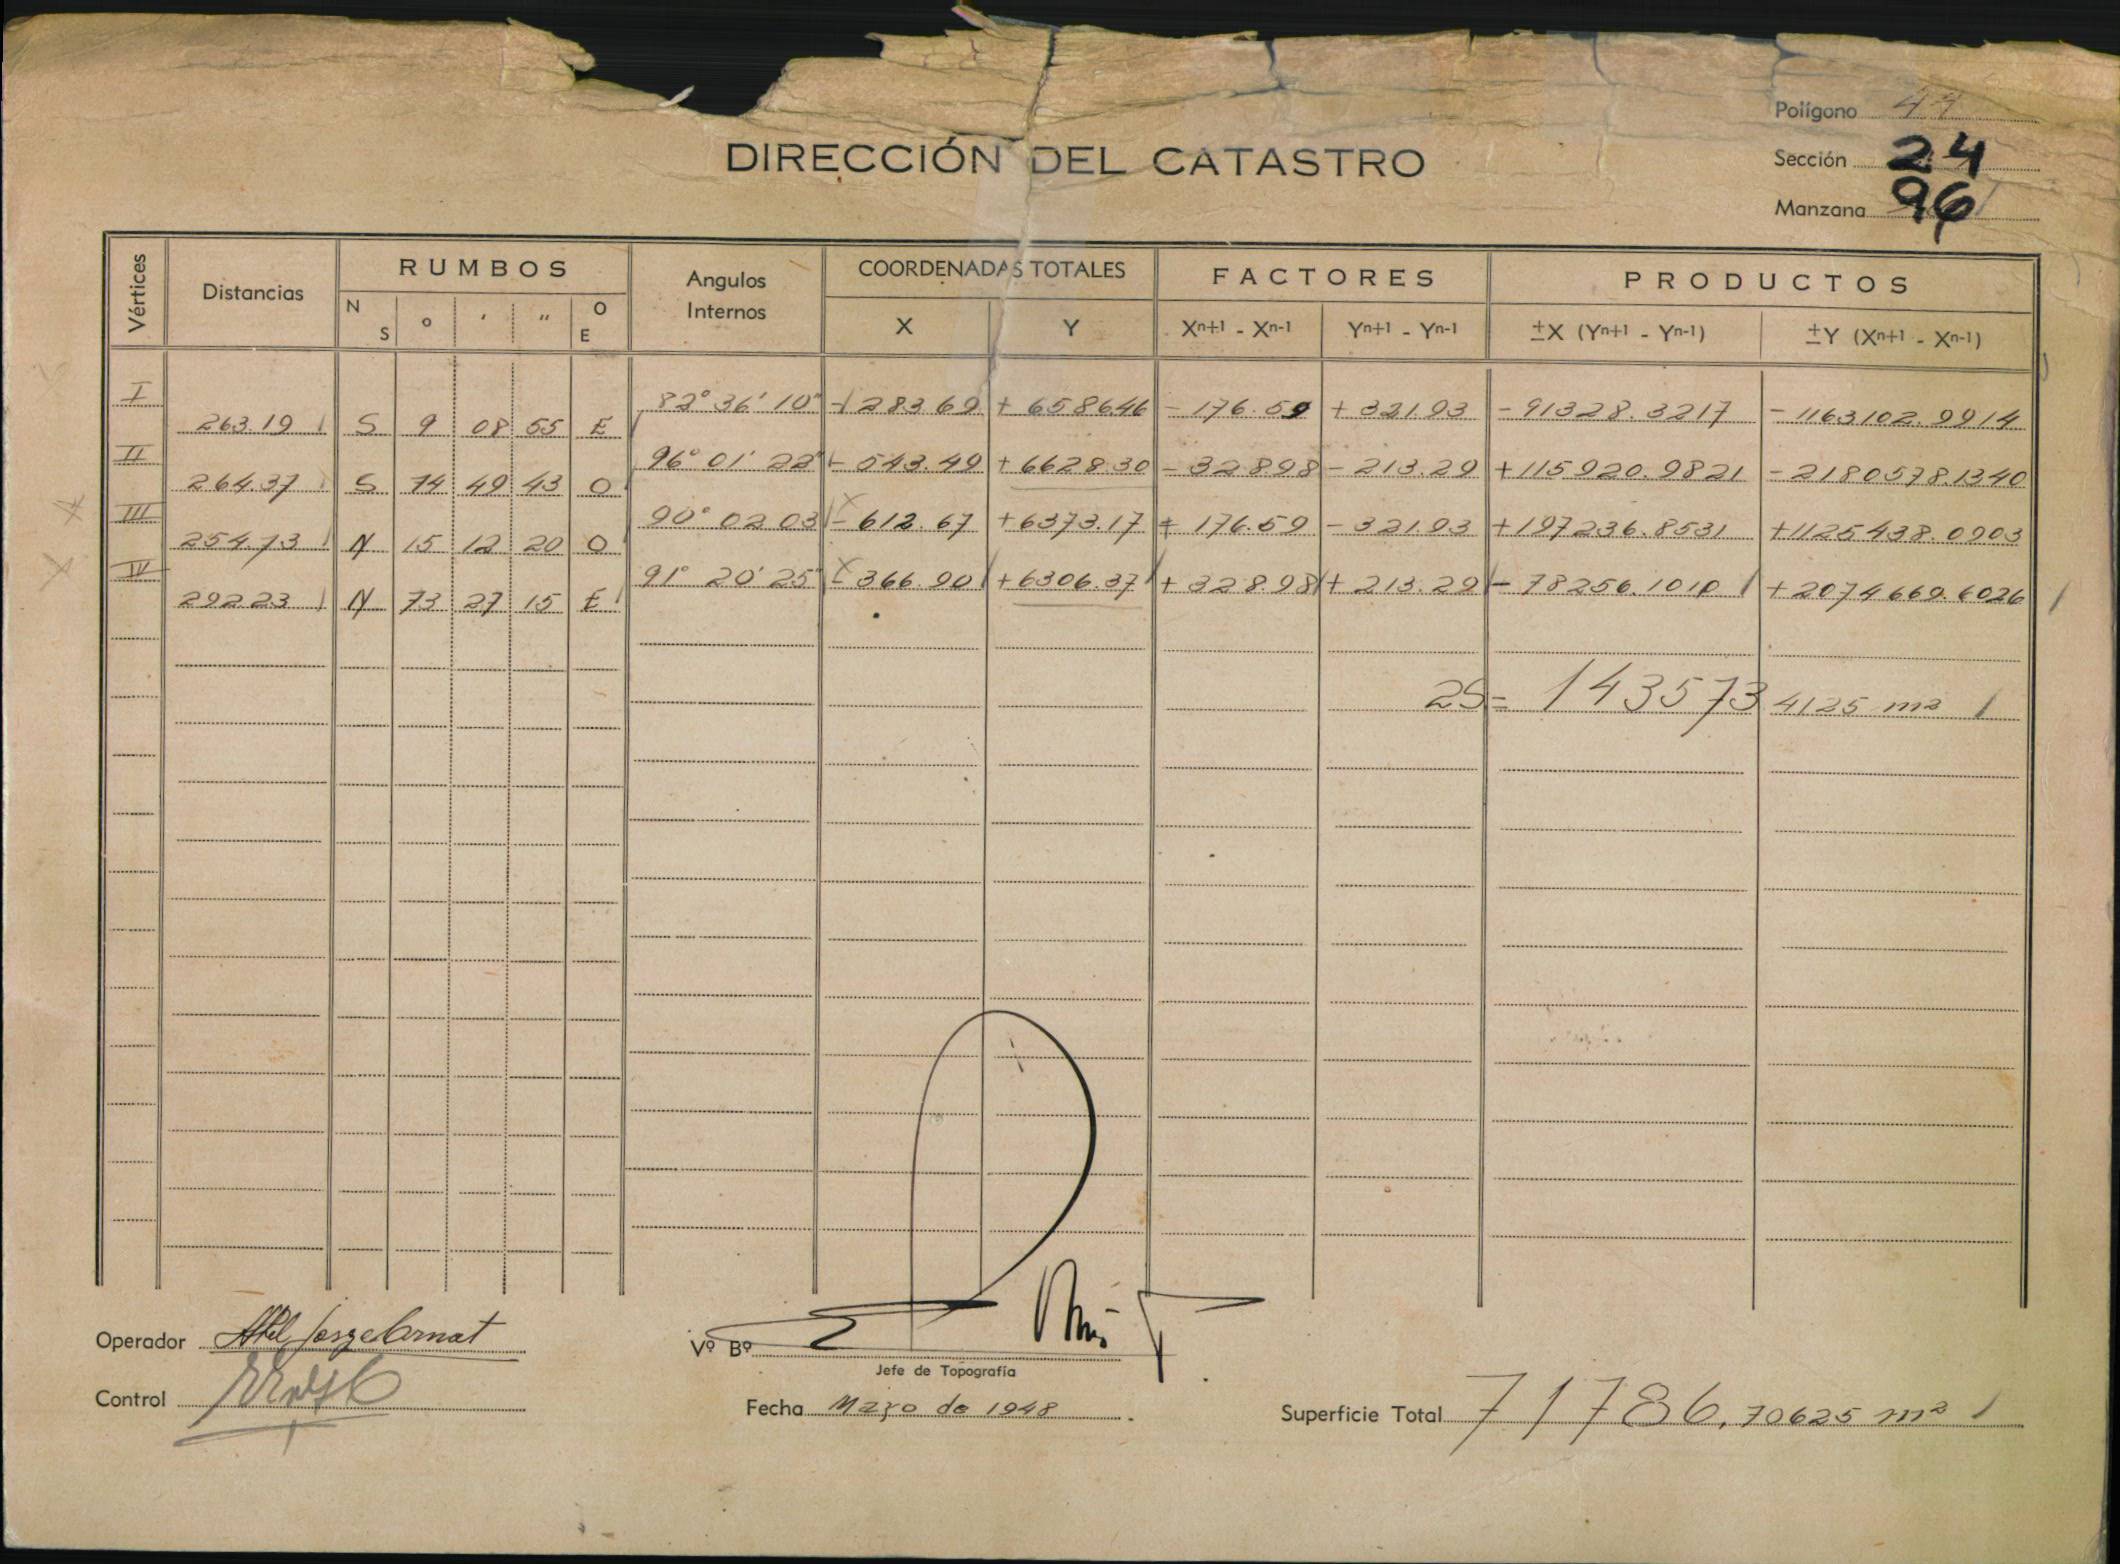 Polígono 44
DIRECCIÓN DEL CATASTRO
Sección 24
Manzana 96
Vértices Distancias RUMBOS Angulos Internos COORDENADAS TOTALES FACTORES PRODUCTOS
N S ° ' " O E X Y Xⁿ⁺¹ - Xⁿ⁻¹ Yⁿ⁺¹ - Yⁿ⁻¹ ±X (Yⁿ⁺¹ - Yⁿ⁻¹) ±Y (Xⁿ⁺¹ - Xⁿ⁻¹)
I 82° 36' 10" - 283.69 + 6586.46 - 176.59 + 321.93 - 91328.3217 - 1163102.9914
263.19 S 9 08 55 E
II 96° 01' 22" - 543.49 + 6628.30 - 328.98 - 213.29 + 115920.9821 - 2180578.1340
264.37 S 74 49 43 O
III 90° 02 03 - 612.67 + 6373.17 + 176.59 - 321.93 + 197236.8531 + 1125438.0903
254.73 N 15 12 20 O
IV 91° 20' 25" - 366.90 + 6306.37 + 328.98 + 213.29 - 78256.1010 + 2074669.6026
292.23 N 73 27 15 E
2S = 143573.4125 m²
Operador
Vº Bº
Jefe de Topografía
Control
Fecha Marzo de 1948
Superficie Total 71786.70625 m²